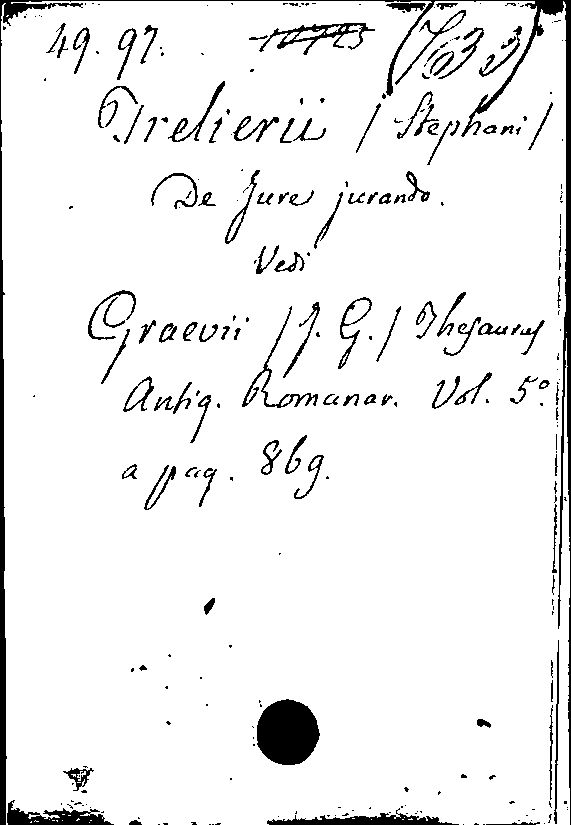 49. 97. (7633)
Trelierii / Stephani /
De Jure jurando.
Vedi
Graevii / J. G. / Thesaurus
Antiq. Romanar. Vol. 5º.
a pag. 869.